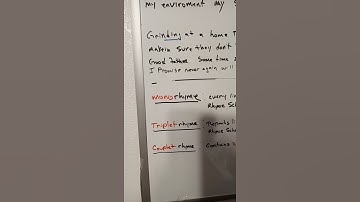 My enviroment My
Grinding at a home
makein sure they dont
Good Some time
I Promise never again will
Monorhyme every
Rhyme Sch
Triplet rhyme Repeats
Rhyme Sch
Couplet rhyme Contains